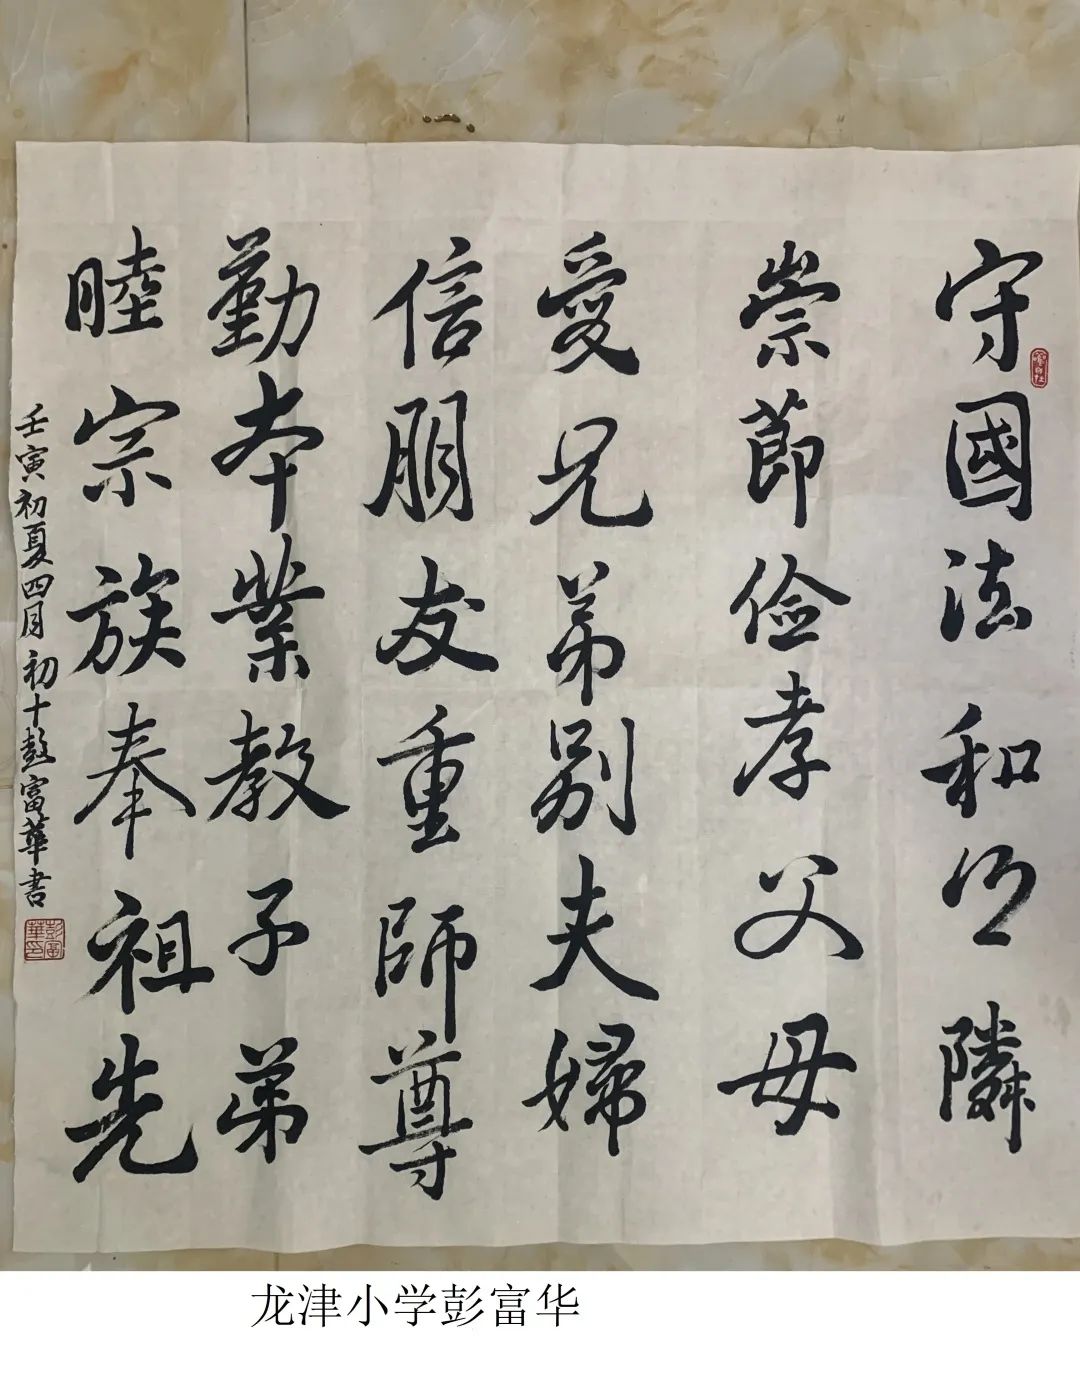 守國法和乡隣
崇節俭孝父母
愛兄弟别夫婦
信朋友重師尊
勤本業教子弟
睦宗族奉祖先
壬寅初夏四月初十彭富華書
彭富華印
龙津小学彭富华